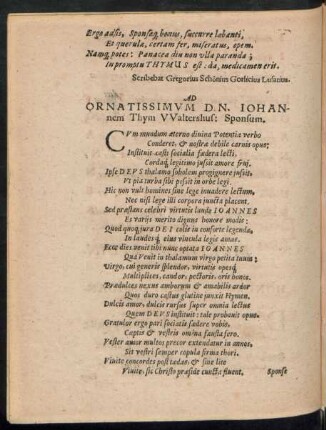 Ergo adsis, Sponsaq; bonus, succurre labanti,
Et querula, certam fer, miseratus, opem.
Namq; potes: Panacea diu non ulla paranda;
In promptu THYMUS est: da, medicamen erit.
Scribebat Gregorius Schönius Gorlicius Lusatius.
AD
ORNATISSIMVM D. N. IOHAN-
nem Thym VValtershus: Sponsum.
CVm mundum æterno divina Potentia verbo
Conderet, & nostræ debile carnis opus;
Instituit casti socialia fœdera lecti,
Cordaq; legitimo jussit amore frui.
Ipse DEVS thalamo sobolem progignere jussit,
Vt pia turba sibi possit in orbe legi.
Hic non vult homines sine lege invadere lectum,
Nec nisi lege illi corpora juncta placent.
Sed præstans celebri virtutis laude IOANNES
Et varijs meritò dignus honore modis:
Quod quoq; jura DEI colit in consorte legenda,
In laudesq; eius vincula legis amat.
Ecce dies venit tibi nunc optata IOANNES
Quâ venit in thalamum virgo petita tuum;
Virgo, cui generis splendor, virtutis opesq;
Multiplices, candor, pectoris, oris honos.
Prædulces nexus amborum & amabilis ardor
Quos duro castus glutine junxit Hymen.
Dulcis amor, dulcis rursus super omnia lectus
Quem DEVS instituit: tale probavit opus.
Gratulor ergo pari sociatis fœdere vobis,
Cœptis & vestris omina fausta fero.
Vester amor multos precor extendatur in annos,
Sit vestri semper copula firma thori.
Vivite concordes post tædas, & sine lite
Vivite, sic Christo præside cuncta fluent.
Sponse